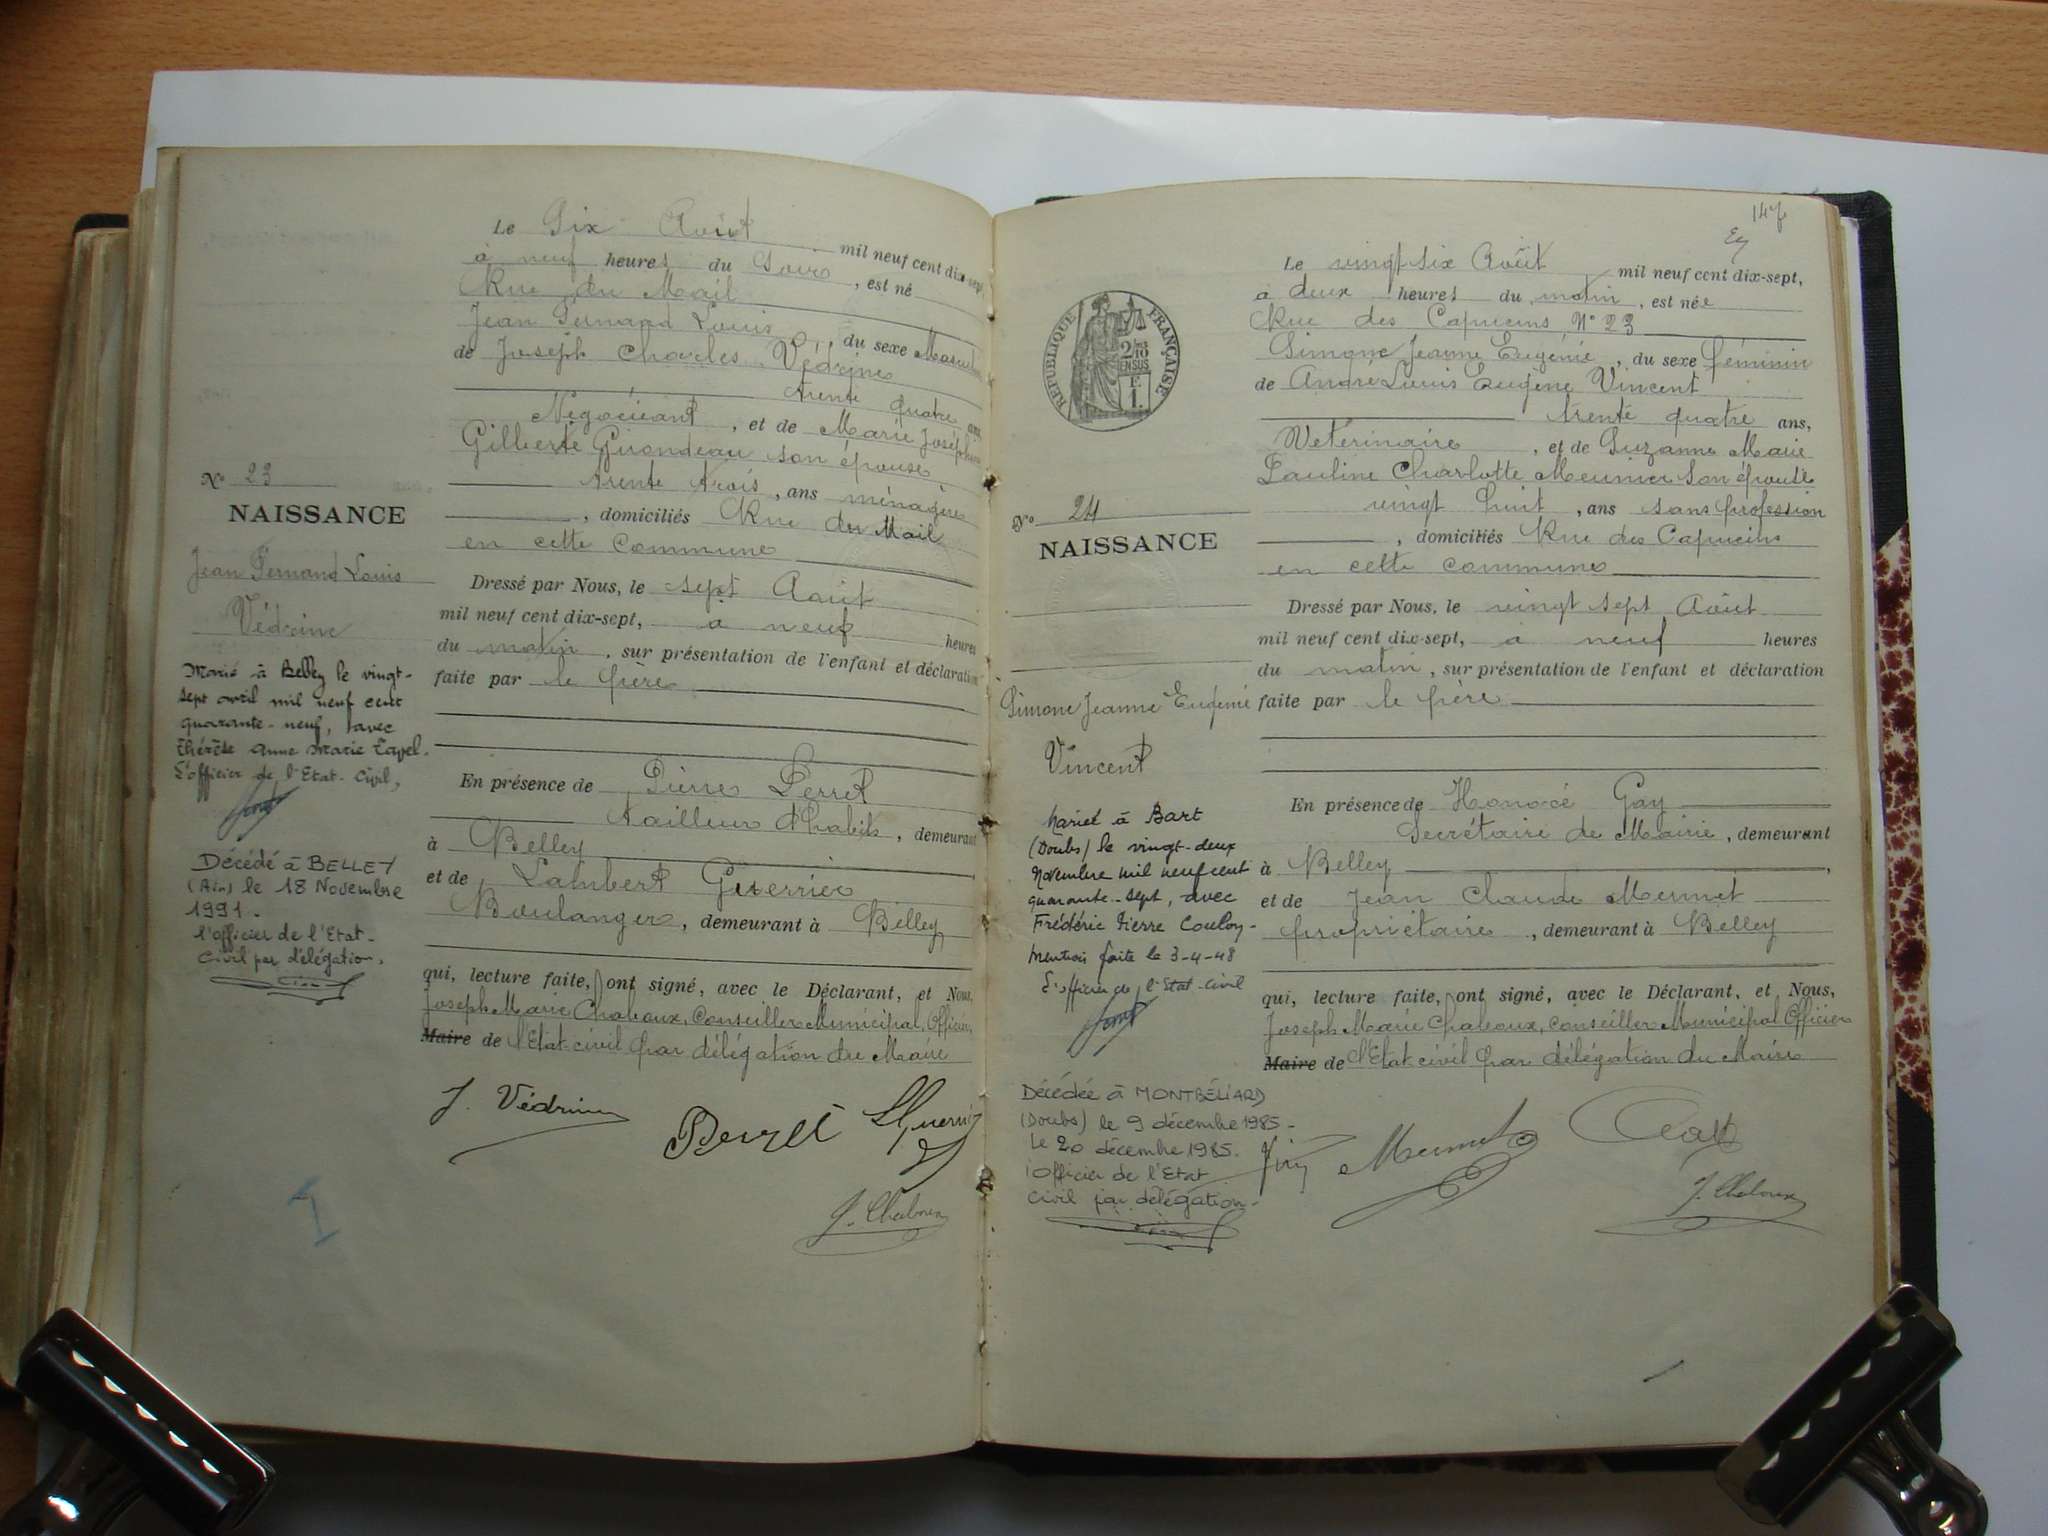 Le Six Août mil neuf cent dix-sept
à neuf heures du soir, est né
Rue du Mail
Jean Fernand Louis, du sexe Masculin
de Joseph Charles Védrine
trente quatre ans
Négociant, et de Marie Joséphine
Gilberte Girondeau son épouse
trente trois, ans ménagère
, domiciliés Rue du Mail
en cette commune
Dressé par Nous, le sept Août
mil neuf cent dix-sept, à neuf heures
du matin, sur présentation de l'enfant et déclaration
faite par le père
En présence de Pierre Perret
tailleur d'habits, demeurant
à Belley
et de Lambert Guerrier
Boulanger, demeurant à Belley
qui, lecture faite, ont signé, avec le Déclarant, et Nous,
Joseph Marie Chaboux, Conseiller Municipal, Officier
Maire de l'Etat-civil par délégation du Maire
J. Védrine
Perret
LGuerrier
J. Chaboux
N° 23
NAISSANCE
Jean Fernand Louis
Védrine
Marié à Belley le vingt-
sept avril mil neuf cent
quarante-neuf, avec
Thérèse Anne Marie
L'officier de l'Etat-Civil,
Décédé à BELLEY
(Ain) le 18 Novembre
1991.
l'officier de l'Etat-
Civil par délégation,
1
147
Le vingt six Août mil neuf cent dix-sept,
à deux heures du matin, est née
Rue des Capucins N° 23
Simone Jeanne Eugénie, du sexe féminin
de André Louis Eugène Vincent
trente quatre ans,
Vétérinaire, et de Suzanne Marie
Pauline Charlotte Meunier son épouse
vingt huit, ans sans profession
, domiciliés Rue des Capucins
en cette commune
Dressé par Nous, le vingt sept Août
mil neuf cent dix-sept, à neuf heures
du matin, sur présentation de l'enfant et déclaration
faite par le père
En présence de Honoré Gay
Secrétaire de Mairie, demeurant
à Belley,
et de Jean Claude Mermet
propriétaire, demeurant à Belley
qui, lecture faite, ont signé, avec le Déclarant, et Nous,
Joseph Marie Chaboux, Conseiller Municipal Officier
Maire de l'Etat-civil par délégation du Maire
Mermet
J. Chaboux
RÉPUBLIQUE FRANÇAISE
2/10
EN SUS
F.
1.
N° 24
NAISSANCE
Simone Jeanne Eugénie
Vincent
Mariée à Bart
(Doubs) le vingt-deux
novembre mil neuf cent
quarante-sept, avec
Frédéric Pierre Coulon-
mention faite le 3-4-48
L'officier de l'Etat-Civil
Décédée à MONTBÉLIARD
(Doubs) le 9 décembre 1985-
Le 20 décembre 1985.
l'officier de l'Etat
Civil par délégation-